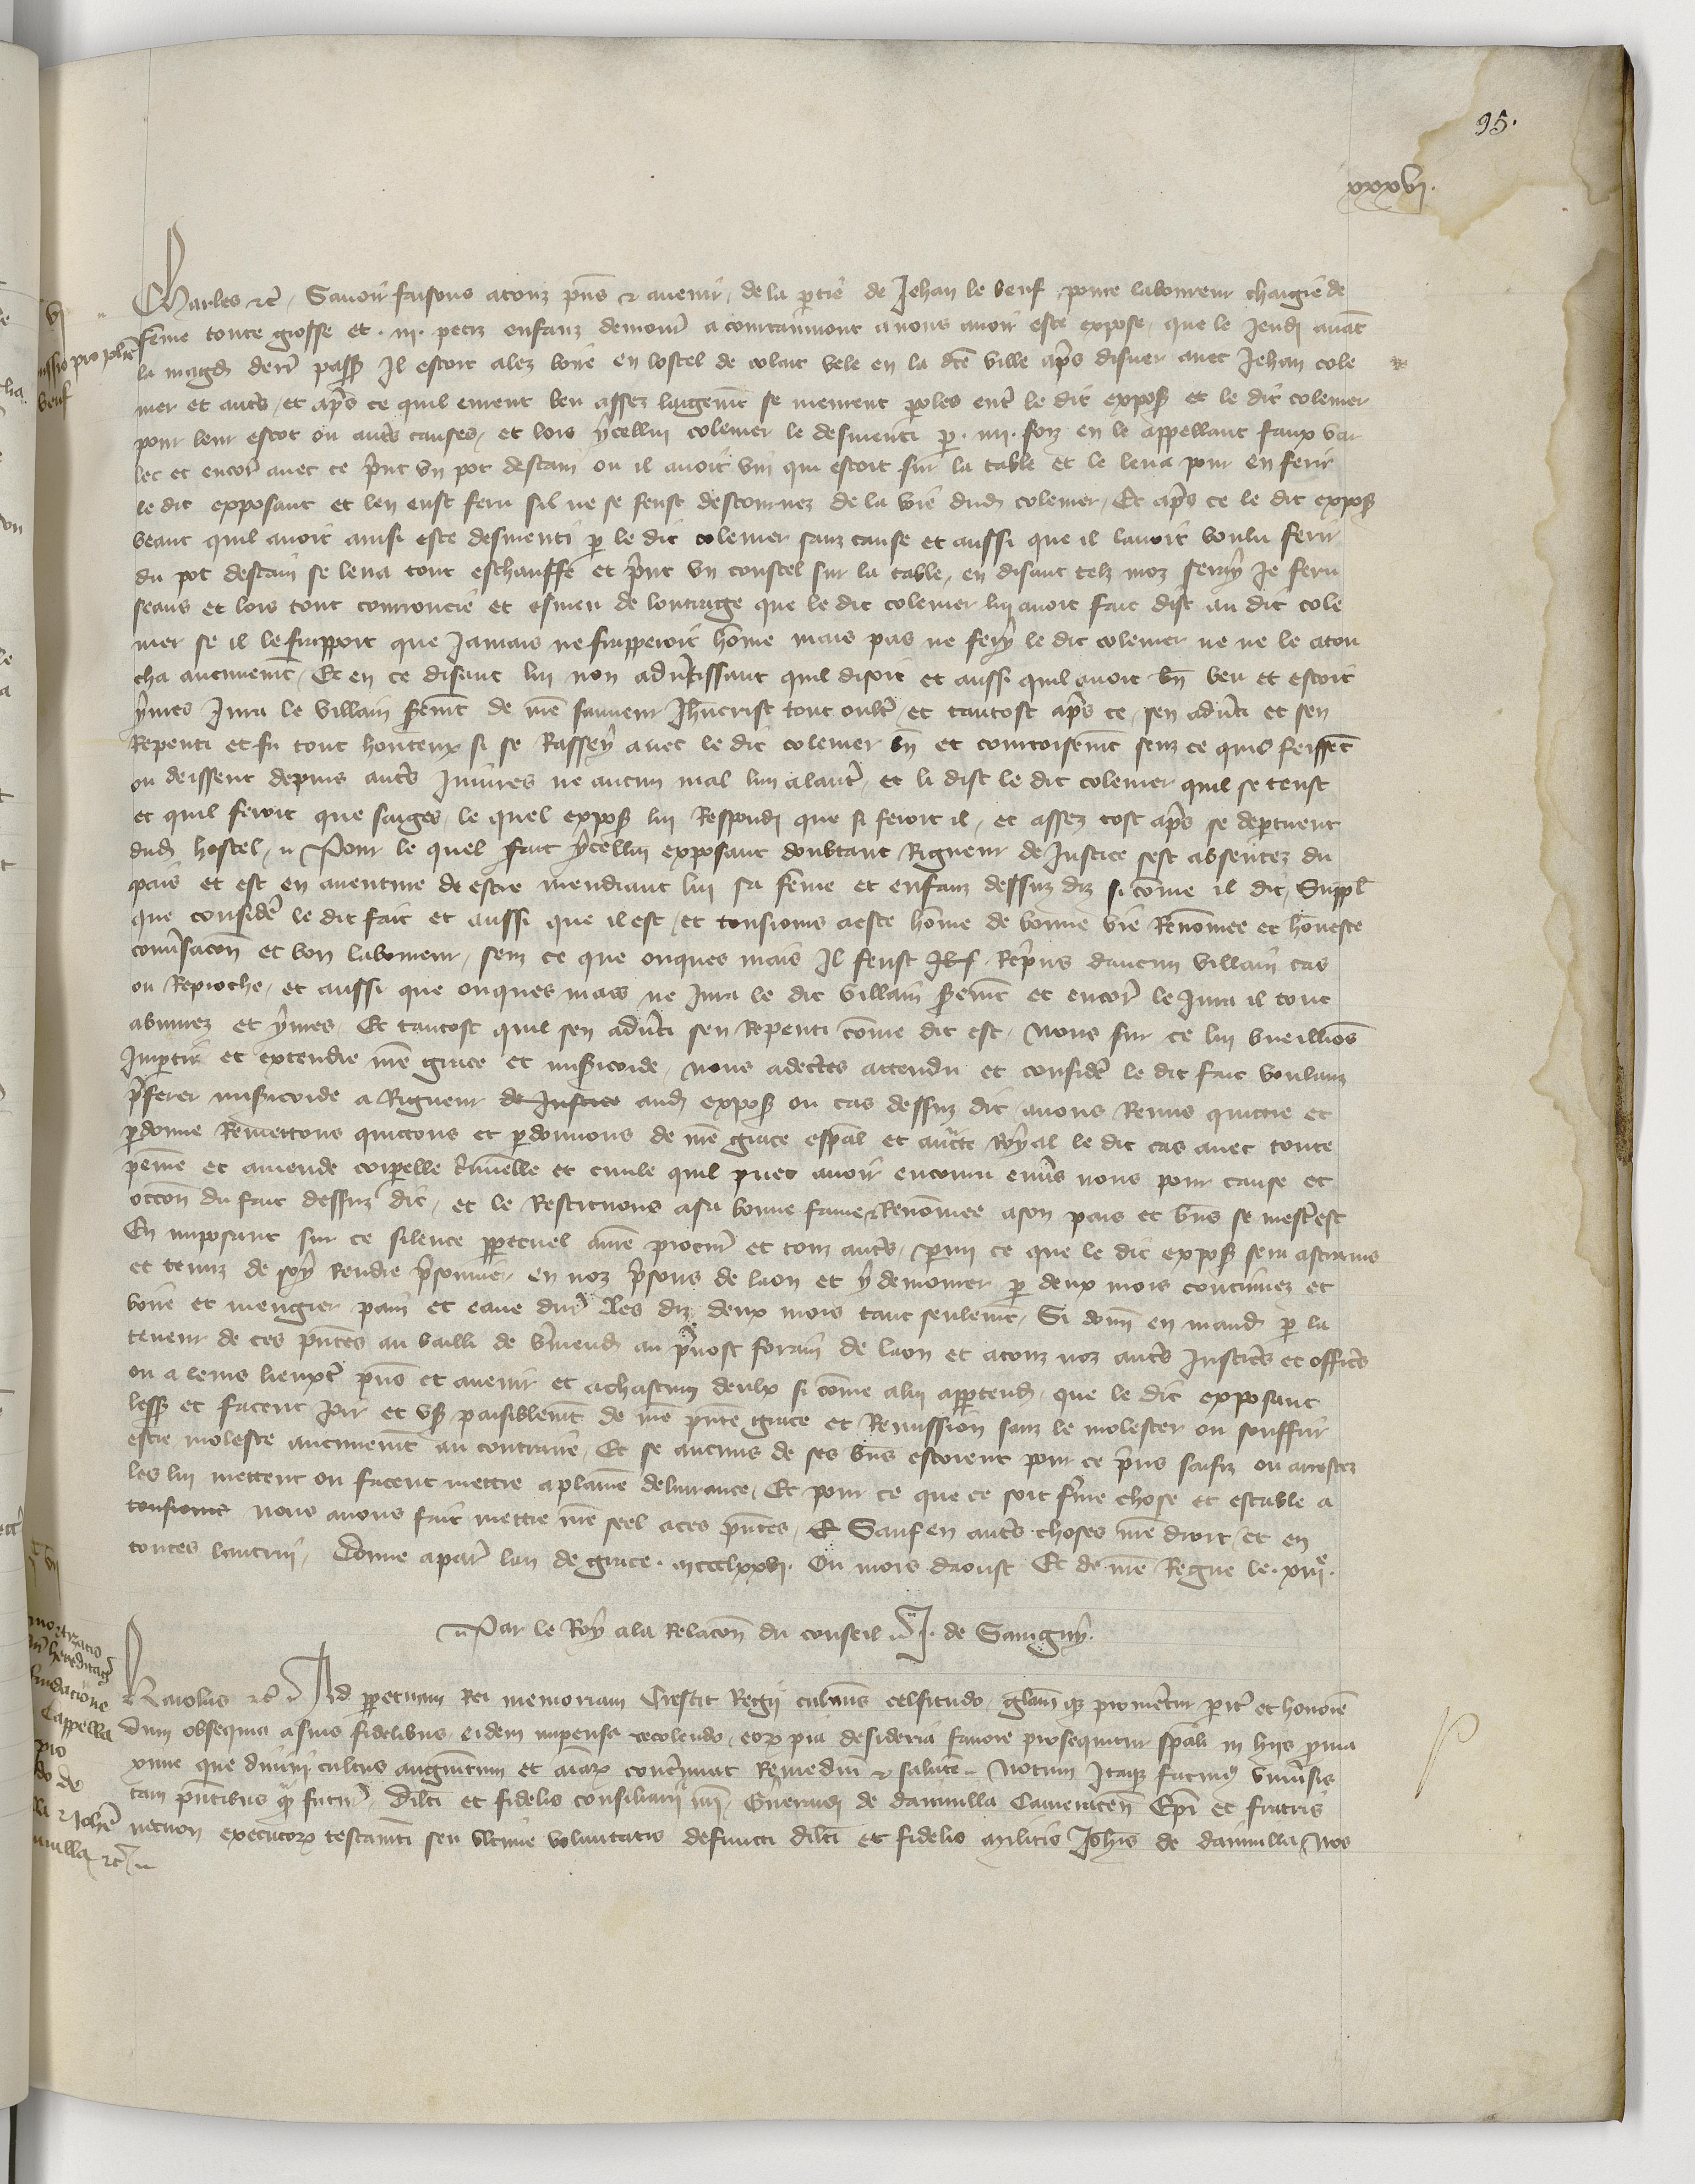 95.
xxxvj.
Charles etc. Savoir faisons a touz pns et avenir, de la partie de Jehan le beuf, povre laboureur chargie de
feme toute grosse et .iij. petiz enfanz demour a nous avoir este expose, que le jeudi avāt
la magd. derr passe Il estoit alez boire en lostel de colart vele en la dte ville apres disner avec Jehan cole
mer et autres, et apres ce quil eurent beu assez largemt se meurent poles entr le dit expos et le dit colemer
pour leur escot ou autres causes, et lors ycellui colemer le desmenti p .iiij. foiz en le appellant faux var
let et encor avec ce prist un pot destain ou il avoit vin qui estoit sur la table et le leva pour en ferir
le dit exposant et len eust feru sil ne se feust destournez de la voie dud. colemer, Et apres ce le dit expos
veant quil avoit ainsi este desmenti p le dit colemer sanz cause et aussi que il lavoit voulu ferir
du pot destain se leva tout eschauffe et prist un coustel sur la table, en disant telz moz ferray je feru
seans et lors tout courroucie et esmeu de loutrage que le dit colemer lui avoit fait dist au dit cole
mer se il le frappoit que jamais ne frapperoit home mais pas ne fery le dit colemer ne ne le atou
cha aucunemt, Et en ce disant lui non advertissant quil disoit et aussi quil avoit bn beu et estoit
yvres jura le villain sermt de nre sauveur Jhucrist tout oultr, et tantost apres ce, sen adverti et sen
Repenti et fu tout honteux si se Rassey avec le dit colemer bn et courtoisemt senz ce quilz feissēt
ou deissent depuis autres Injures ne aucun mal lun a lautr, et li dist le dit colemer quil se teust
et quil feroit que saiges, le quel expos lui Respondi que si feroit il, et assez tost apres se departirent
dud. hostel, Pour le quel fait ycellui exposant doubtant Rigueur de Justice sest absentez du
pais et est en aventure de estre mendiant lui sa feme et enfanz dessuz diz si come il dit, Suppl
que consider le dit fait et aussi que il est, et tousiours a este home de bonne vie Renomee et honeste
conversacon et bon laboureur, senz ce que onques mais Il feust Repris daucun villain cas
ou Reproche, et aussi que onques mais ne jura le dit villain sermt et encor le jura il tout
abuvrez et yvres, Et tantost quil sen adverti sen Repenti come dit est, Nous sur ce lui vueillions
Impartir et extendre nre grace et misericorde, Nous adectes attendu et consider le dit fait voulanz
preferer misericorde a Rigueur de Justice aud. expos ou cas dessuz dit avons Remis quittie et
pdonne Remettons quittons et pdonnons de nre grace espal et aucte Royal le dit cas avec toute
peine et amende corporelle criminelle et civile quil puet avoir encouru envers nous pour cause et
occon du fait dessuz dit, et le Restituons a sa bonne fame et Renomee a son pais et bns se mestr est
En imposant sur ce silence perpetuel a nre procur et touz autres, parmi ce que le dit expos sera astrains
et tenuz de soy Rendre prisonnier en noz prisons de laon et y demourer p deux mois continuez et
boire et mengier pain et eaue dur les diz deux mois tant seulemt, Si donn en mand. p la
teneur de ces pntes au bailli de vermend. au prevost forain de laon et a touz noz autres Justices et offices
ou a leurs lieuxtr pns et avenir et a chascun deulx si come a lui appartend., que le dit exposant
less et facent joir et us paisiblemt de nre pnte grace et Remission sanz le molester ou souffrir
estre moleste aucunemt au contraire, Et se aucuns de ses bns estoient pour ce pris saisiz ou arrestez
les lui mettent ou facent mettre a plaine delivrance, Et pour ce que ce soit ferme chose et estable a
tousiours Nous avons fait mettre nre seel a ces pntes, Sauf en autres choses nre droit, et en
toutes lautrui, Donne a paris lan de grace .mccclxxvj. Ou mois daoust Et de nre Regne le .xiij.e
Par le Roy a la Relacon du conseil J. de Savigny.
Karolus etc. Ad perpetuam Rei memoriam Crescit Regii culminis celsitudo, glam que promeretur pariter et honorem
dum obsequia a suis fidelibus, eidem impensa recolendo, eorum pia desideria favore prosequitur spali in hiis prima
xime que divini cultus augmentum et aiarum concernunt Remedium et salutem, Notum Itaque facimus universis
tam pntibus quam futuris, Dilti et fidelis consiliarii nri, Gueraudi de dainvilla Cameracen Epi et fratris
necnon executorum testamenti seu ultime voluntatis defuncti dilti et fidelis militis Johis de dainvilla, Nos